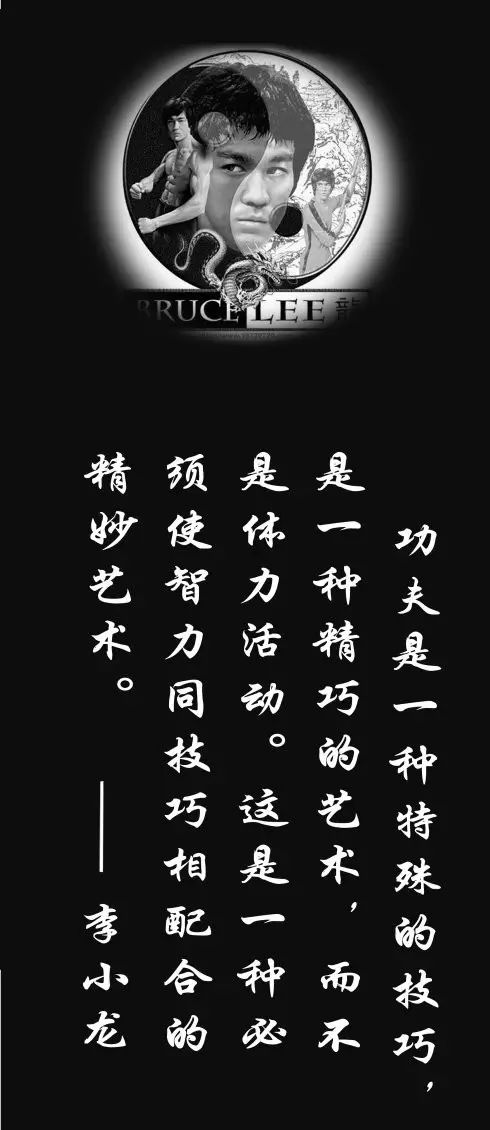 BRUCE LEE 龍
功夫是一种特殊的技巧，
是一种精巧的艺术，而不
是体力活动。这是一种必
须使智力同技巧相配合的
精妙艺术。——李小龙